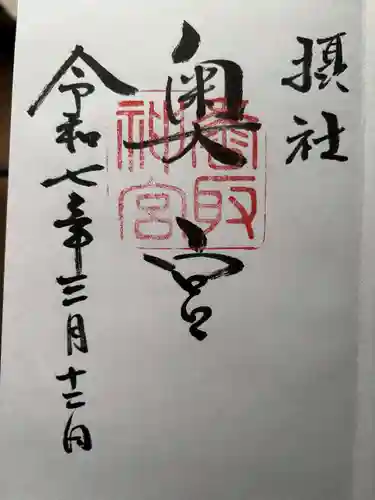 摂社
奥宮
香取神宮
令和七年三月十二日